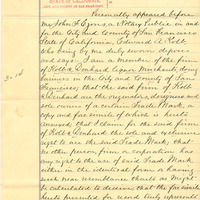 STATE OF CALIFORNIA,
Personally appeared before
me John F. Lyons, a Notary Public in and
for the City and County of San Francisco
State of California, Edward A. Kolb
who being by me duly sworn deposes
and says— I am a member of the firm
of Kolb & Denhard Liquor Merchants doing
business in the City and County of San
Francisco; that the said firm of Kolb
& Denhard are the originators, designers and
sole owners of a certain Trade Mark, a
copy and fac simile of which is hereto
annexed, that I claim for the said firm
of Kolb & Denhard the sole and exclusive
right to use the said Trade Mark; that
no other person, firm or corporation has
any right to the use of said Trade Mark
either in the identical form or having
such near resemblance thereto as might
be calculated to deceive; that the fac simile
hereto presented for record truly represents